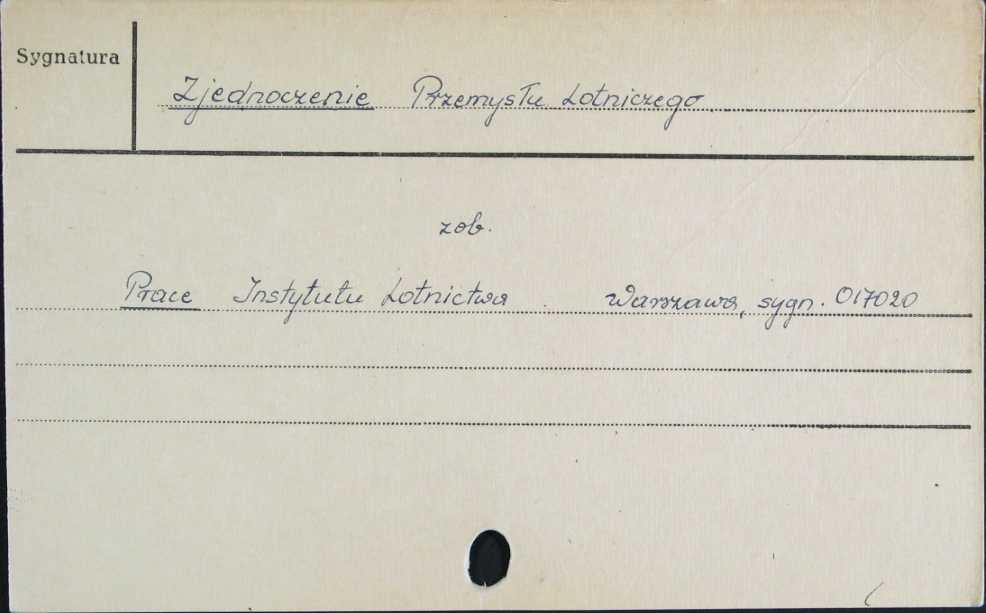 Sygnatura
Zjednoczenie Przemysłu Lotniczego
zob.
Prace Instytutu Lotnictwa Warszawa, sygn. 017020